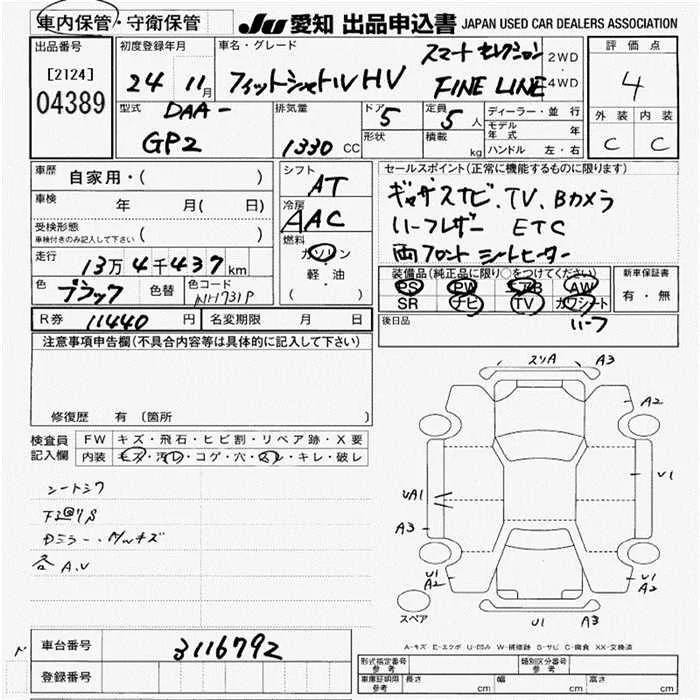 車内保管・守衛保管
JU 愛知 出品申込書 JAPAN USED CAR DEALERS ASSOCIATION
出品番号
[2124]
04389
初度登録年月
24 11月
車名・グレード
スマート セレクション
フィットシャトル HV FINE LINE
2WD
・
4WD
評価点
4
外装 内装
C C
型式 DAA-
GP2
排気量
1330 CC
ドア 5
形状
定員 5 人
積載 kg
ディーラー・並行
モデル年式 年
ハンドル 左・右
車歴 自家用・( )
車検 年 月( 日)
受検形態
車検付きのみ記入して下さい ( )
走行 13万4千437km
色 ブラック 色替 色コード NH731P
シフト AT
冷房 AAC
燃料
ガソリン
軽・油
( )
セールスポイント(正常に機能するものに限ります)
ギャザズナビ、TV、Bカメラ
ハーフレザー ETC
両フロント シートヒーター
装備品(純正品に限り○をつけてください)
PS PW エアB AW
SR ナビ TV カワシート
ハーフ
新車保証書
有・無
後日品
R券 11440 円 名変期限 月 日
注意事項申告欄(不具合内容等は具体的に記入して下さい)
修復歴 有 (箇所 )
検査員記入欄
FW キズ・飛石・ヒビ割・リペア跡・X要
内装 キズ・汚れ・コゲ・穴・スレ・キレ・破レ
シートシワ
各 A.U
スリA A3
A2
U1
UA1
A3
U1
A2
U1
A2
スペア
U1 A3
A-キズ E-エクボ U-凹み W-補修跡 S-サビ C-腐食 XX-交換済
車台番号 3116792
登録番号
形式指定番号 参考
類別区分番号 参考
車庫証明用 参考 長さ cm 幅 cm 高さ cm